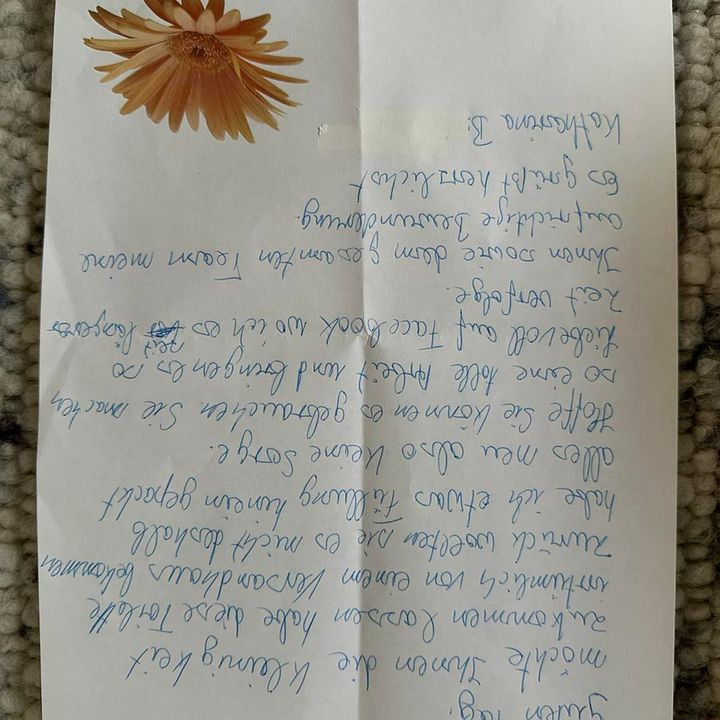 guten Tag.
möchte Ihnen die Kleinigkeit
zukommen lassen habe diese Toilette
irrtümlich von einem Versandhaus bekommen
zurück wollten sie es nicht deshalb
habe ich etwas Füllung hinein gepackt
alles neu also keine Sorge.
Hoffe Sie können es gebrauchen Sie machen
so eine tolle Arbeit und bringen es so
liebevoll auf Facebook wo ich es seit längerer
Zeit verfolge.
Ihnen sowie dem gesamten Team meine
aufrichtige Bewunderung.
Es grüßt herzlichst
Katharina B.